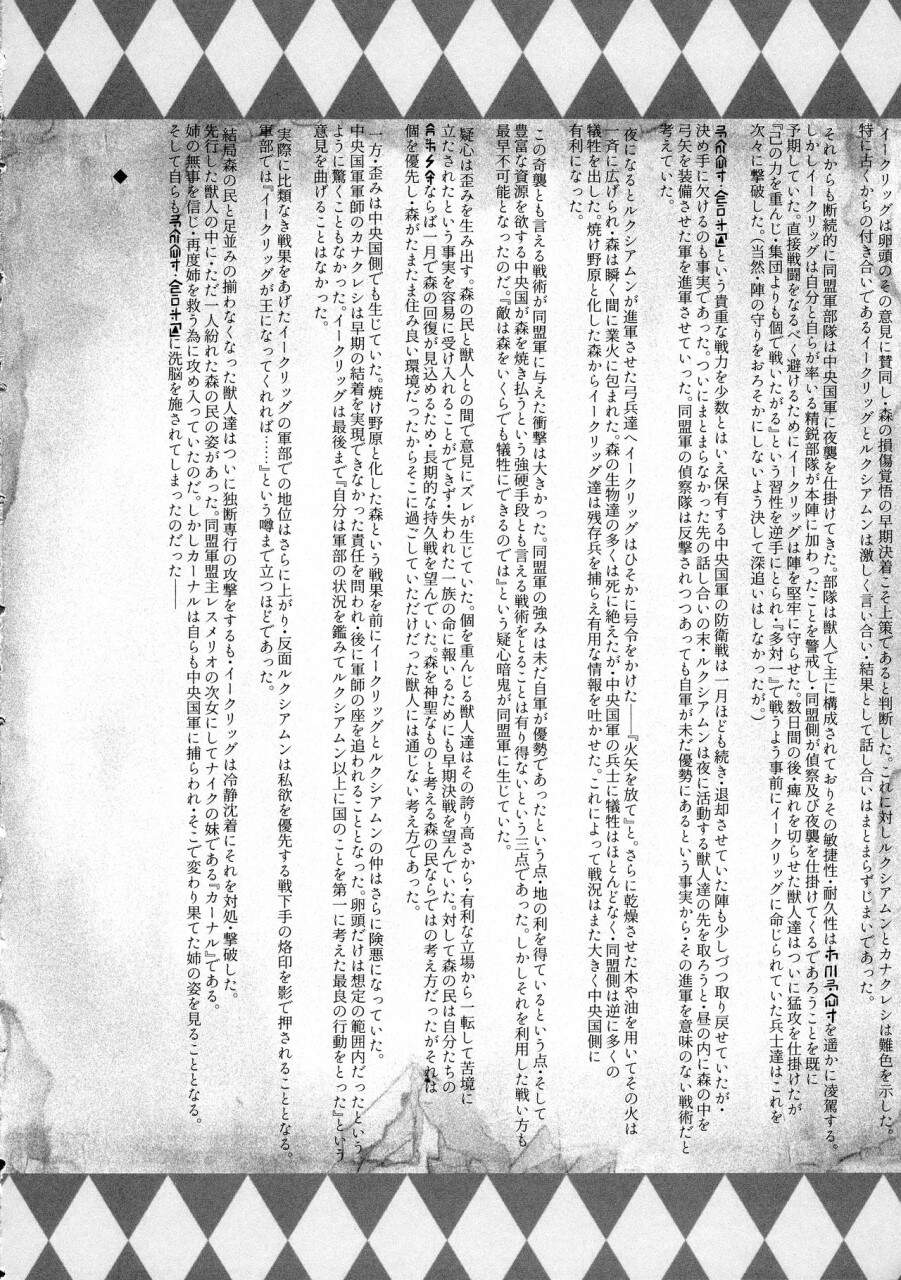 イークリッグは卵頭のその意見に賛同し・森の損傷覚悟の早期決着こそ上策であると判断した。これに対しルクシアムンとカナクレシは難色を示した。
特に古くからの付き合いであるイークリッグとルクシアムンは激しく言い合い・結果として話し合いはまとまらずじまいであった。
それからも断続的に同盟軍部隊は中央国軍に夜襲を仕掛けてきた。部隊は獣人で主に構成されておりその敏捷性・耐久性は を遥かに凌駕する。
しかしイークリッグは自分と自らが率いる精鋭部隊が本陣に加わったことを警戒し・同盟側が偵察及び夜襲を仕掛けてくるであろうことを既に
予期していた。直接戦闘をなるべく避けるためにイークリッグは陣を堅牢に守らせた。数日間の後・痺れを切らせた獣人達はついに猛攻を仕掛けたが
『己の力を重んじ・集団よりも個で戦いたがる』という習性を逆手にとられ『多対一』で戦うよう事前にイークリッグに命じられていた兵士達はこれを
次々に撃破した。（当然・陣の守りをおろそかにしないよう決して深追いはしなかったが。）
という貴重な戦力を少数とはいえ保有する中央国軍の防衛戦は一月ほども続き・退却させていた陣も少しづつ取り戻せていたが・
決め手に欠けるのも事実であった。ついにまとまらなかった先の話し合いの末・ルクシアムンは夜に活動する獣人達の先を取ろうと・昼の内に森の中を
弓矢を装備させた軍を進軍させていった。同盟軍の偵察隊は反撃されつつあっても自軍が未だ優勢にあるという事実から・その進軍を意味のない戦術だと
考えていた。
夜になるとルクシアムンが進軍させた弓兵達へイークリッグはひそかに号令をかけた――『火矢を放て』と。さらに乾燥させた木や油を用いてその火は
一斉に広げられ・森は瞬く間に業火に包まれた。森の生物達の多くは死に絶えたが・中央国軍の兵士に犠牲はほとんどなく・同盟側は逆に多くの
犠牲を出した。焼け野原と化した森からイークリッグ達は残存兵を捕らえ有用な情報を吐かせた。これによって戦況はまた大きく中央国側に
有利になった。
この奇襲とも言える戦術が同盟軍に与えた衝撃は大きかった。同盟軍の強みは未だ自軍が優勢であったという点・地の利を得ているという点・そして
豊富な資源を欲する中央国が森を焼き払うという強硬手段とも言える戦術をとることは有り得ないという三点であった。しかしそれを利用した戦い方も
最早不可能となったのだ。『敵は森をいくらでも犠牲にできるのでは』という疑心暗鬼が同盟軍に生じていた。
疑心は歪みを生み出す。森の民と獣人との間で意見にズレが生じていた。個を重んじる獣人達はその誇り高さから・有利な立場から一転して苦境に
立たされたという事実を容易に受け入れることができず・失われた一族の命に報いるためにも早期決戦を望んでいた。対して森の民は自分たちの
ならば一月で森の回復が見込めるため・長期的な持久戦を望んでいた。森を神聖なものと考える森の民ならではの考え方だったがそれは
個を優先し・森がたまたま住み良い環境だったからそこに過ごしていただけだった獣人には通じない考え方であった。
一方・歪みは中央国側でも生じていた。焼け野原と化した森という戦果を前にイークリッグとルクシアムンの仲はさらに険悪になっていた。
中央国軍軍師のカナクレシは早期の結着を実現できなかった責任を問われ・後に軍師の座を追われることとなった。卵頭だけは想定の範囲内だったという
ように驚くこともなかった。イークリッグは最後まで『自分は軍部の状況を鑑みてルクシアムン以上に国のことを第一に考えた最良の行動をとった』という
意見を曲げることはなかった。
実際に比類なき戦果をあげたイークリッグの軍部での地位はさらに上がり・反面ルクシアムンは私欲を優先する戦下手の烙印を影で押されることとなる。
軍部では『イークリッグが王になってくれれば……』という噂まで立つほどであった。
結局森の民と足並みの揃わなくなった獣人達はついに独断専行の攻撃をするも・イークリッグは冷静沈着にそれを対処・撃破した。
先行した獣人の中に・ただ一人紛れた森の民の姿があった。同盟軍盟主レスメリオの次女にしてナイクの妹である『カーナル』である。
姉の無事を信じ・再度姉を救う為に攻め入っていたのだ。しかしカーナルは自らも中央国軍に捕らわれ・そこで変わり果てた姉の姿を見ることとなる。
そして自らも に洗脳を施されてしまったのだった――
◆